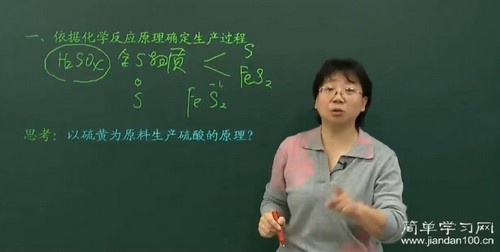 一、依据化学反应原理确定生产过程
H₂SO₄ 含S物质 < S
FeS₂
0 -1
S FeS₂
思考：以硫黄为原料生产硫酸的原理？
简单学习网
www.jiandan100.cn